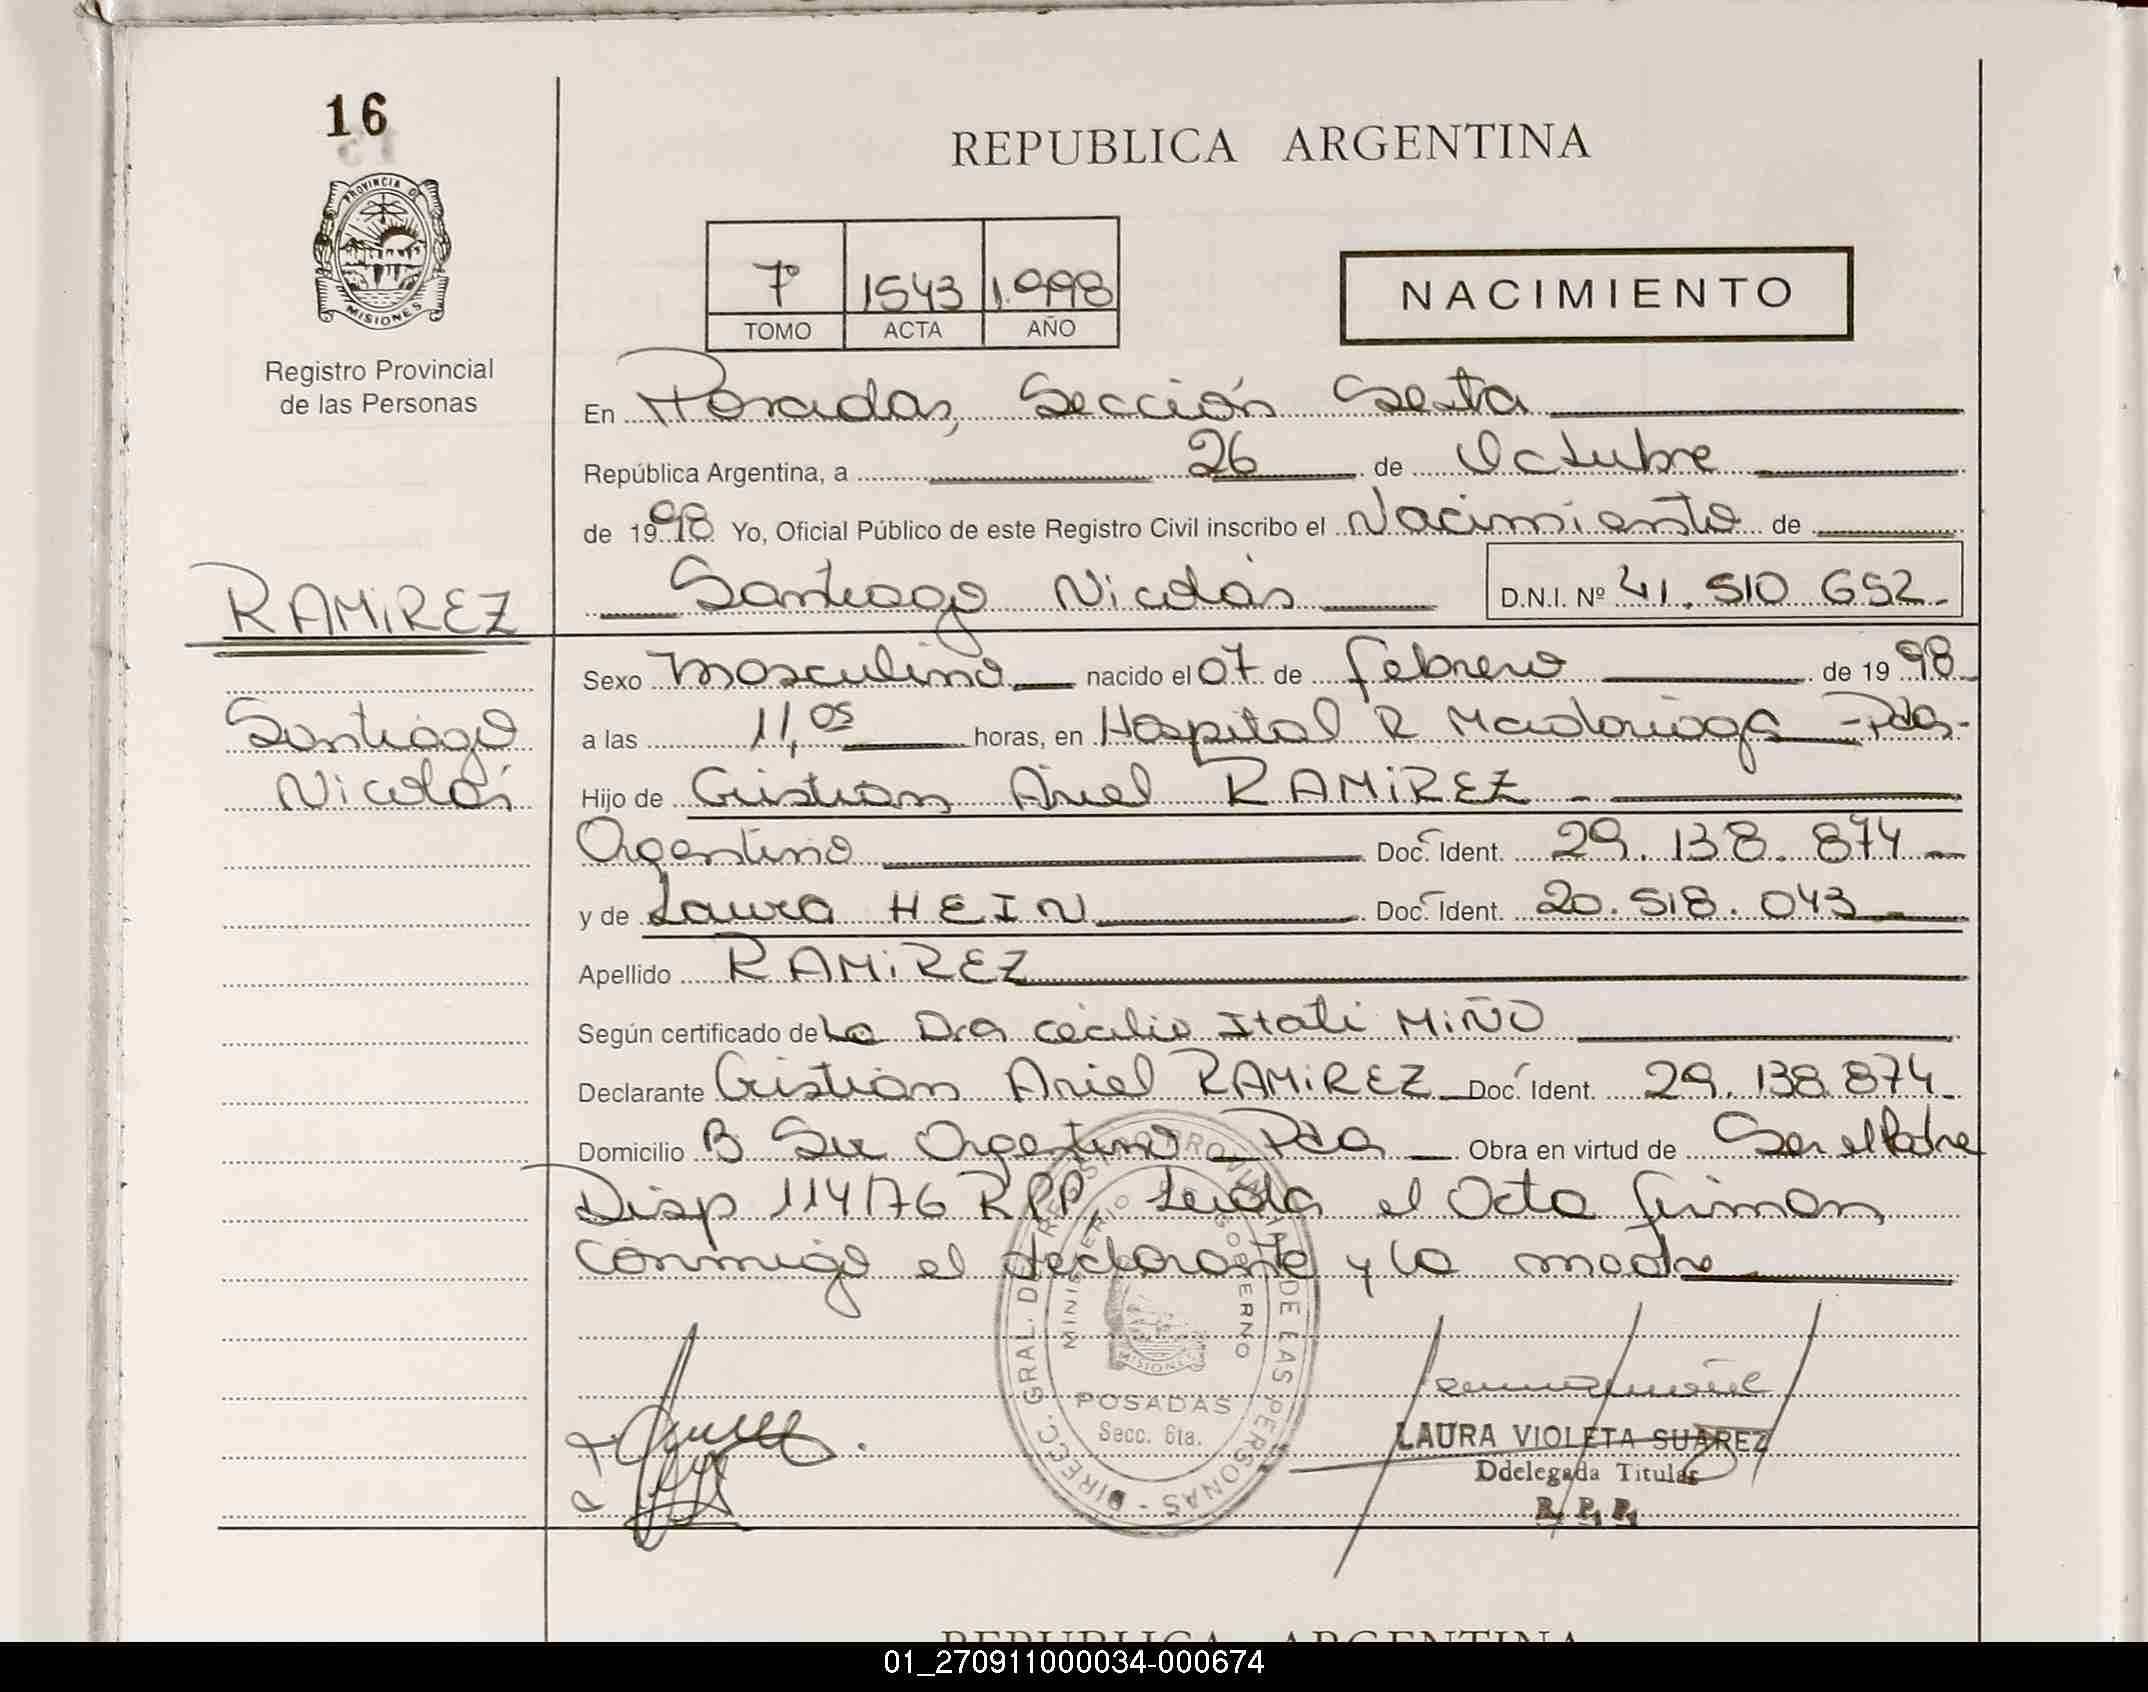 16
PROVINCIA DE
MISIONES
Registro Provincial
de las Personas
REPUBLICA ARGENTINA
7º 1543 1.998
TOMO ACTA AÑO
NACIMIENTO
En Posadas, Sección Sexta
República Argentina, a 26 de Octubre
de 1998 Yo, Oficial Público de este Registro Civil inscribo el Nacimiento de
Santiago Nicolás D.N.I. Nº 41.510 652.
RAMIREZ
Santiago
Nicolás
Sexo Masculino nacido el 07 de febrero de 1998
a las 11,05 horas, en Hospital R Madariaga - Pdas-
Hijo de Cristian Ariel RAMIREZ
Argentino Doc. Ident. 29.138.874
y de Laura HEIN Doc. Ident. 20.518.043
Apellido RAMIREZ
Según certificado de La Dra Cecilia Itati MIÑO
Declarante Cristian Ariel RAMIREZ Doc. Ident. 29.138.874
Domicilio B Sur Argentino Pda Obra en virtud de Ser el Padre
Disp 114/76 RPP, Leida el Acta firman
conmigo el declarante y la madre
DIRECC. GRAL. DE REGISTRO PROVINCIAL DE LAS PERSONAS -
MINISTERIO DE GOBIERNO
MISIONES
POSADAS
Secc. 6ta.
LAURA VIOLETA SUAREZ
Ddelegada Titular
R. P. P.
REPUBLICA ARGENTINA
01_270911000034-000674